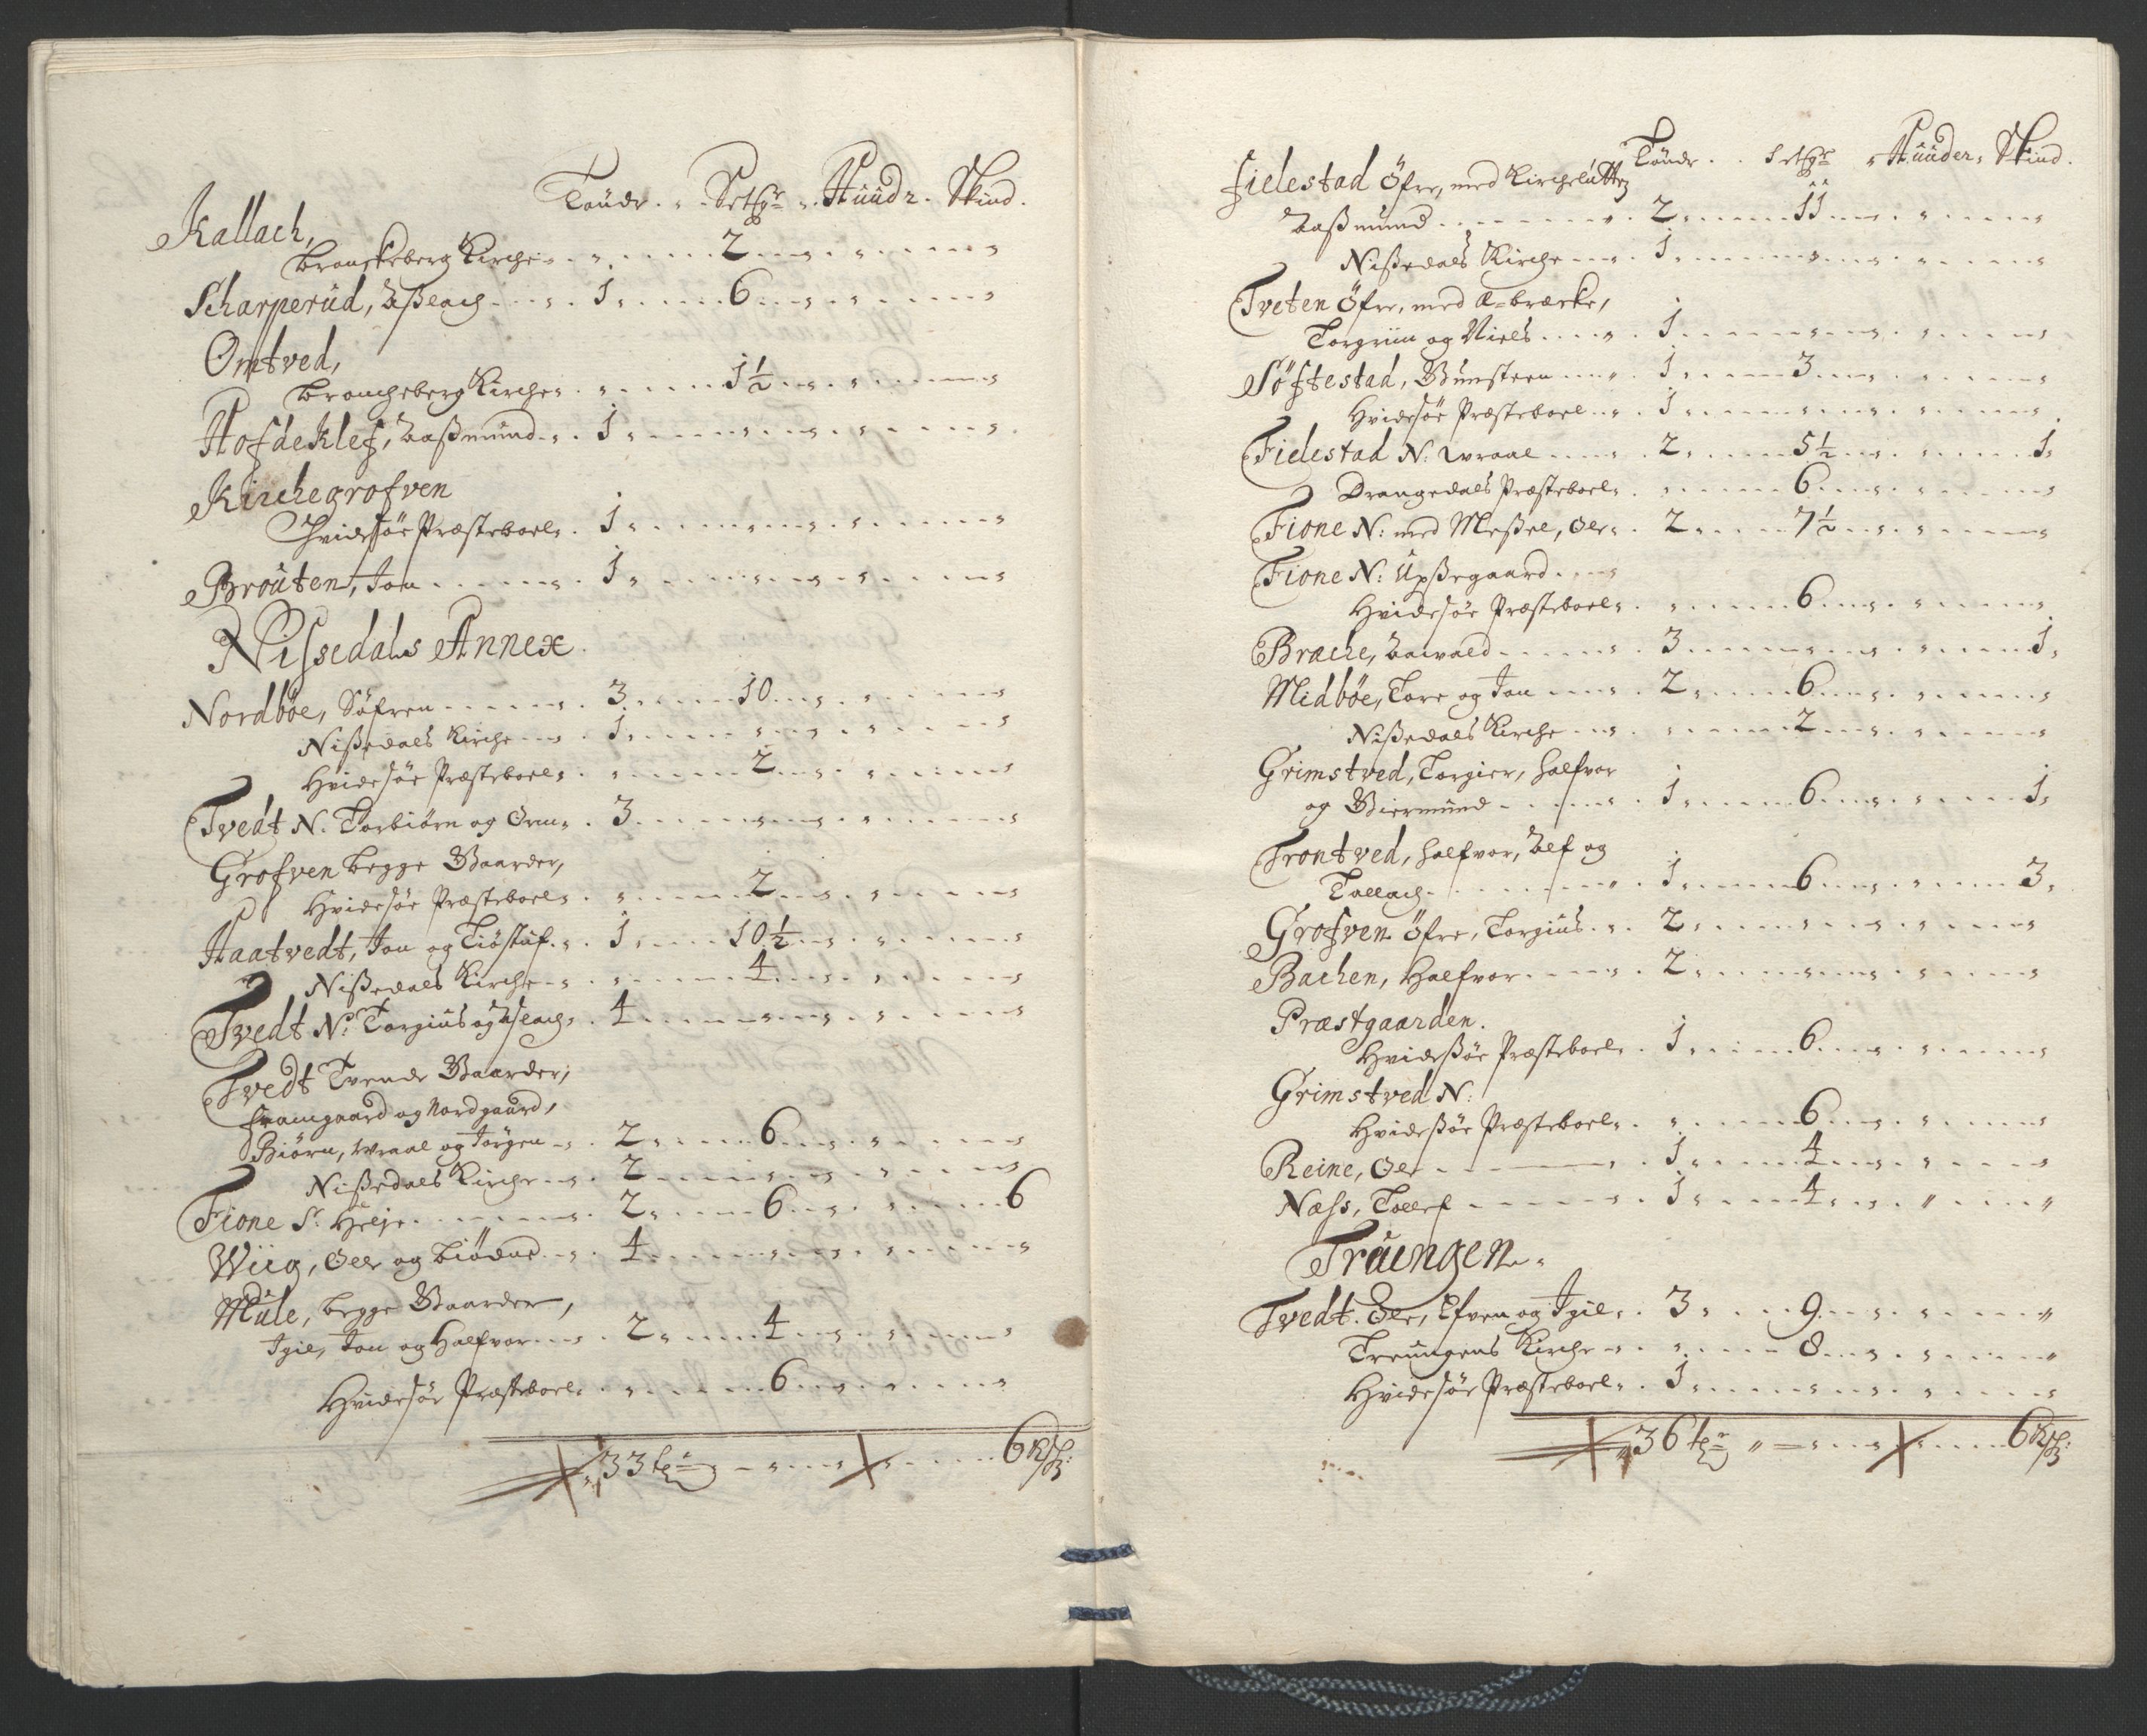 Tøndr. Setgr. Huudr. Skind.
Kallach,
Brunckeberg Kirche 2
Scharperud, Aßlach 1 6
Omtved,
Brunckeberg Kirche 1½
Hofdeklef, Aaßmund 1
Kirchegrofven
Hvidesøe Præsteboel 1
Brouten, Jon 1
Nissedals Annex
Nordbøe, Söfren 3 10
Nißedals Kirche 1
Hvidesøe Præsteboel 2
Tvedt N. Torbiörn og Orm 3
Grofven begge Gaarder,
Hvidesøe Præsteboel 2
Haatvedt, Jon og Tiöstuf 1 10½
Nißedals Kirche 4
Tvedt N. Torgius og Aslach 4
Tvedt Tvende Gaarder,
framgaard og Nordgaard,
Biörn, Wraal og Jörgen 2 6
Nißedals Kirche 2
Fione S. Helje 2 6 6
Wiig, Ole og Liödvor 4
Mule, begge Gaarder,
Igil, Jon og Halfvor 2 4
Hvidesøe Præsteboel 6
33 tr 6 Kß:
Tøndr. Setgr. Huuder. Skind.
Fielestad Öfre, med Kirchelutten
Aaßmund 2 11
Nißedals Kirche 1
Tveten Öfre, med A-bræcke,
Torgrim og Niels 1
Söftestad, Gunsteen 1 3
Hvidesøe Præsteboel 1
Fielestad N: Wraal 2 5½ 1
Drangedals Præsteboel 6
Fione N: med Meßel, Ole 2 7½
Fione N: Upßegaard
Hvidesøe Præsteboel 6
Brache, Aawald 3 1
Midbøe, Tore og Jon 2 6
Nißedals Kirche 2
Grimstved, Torgier, Halfvor
og Giermund 1 6 1
Trontved, Halfvor, Alf og
Tollach 1 6 3
Grofven Öfre, Torgius 2
Bachen, Halfvor 2
Præstgaarden.
Hvideßøe Præsteboel 1 6
Grimstved N:
Hvideßøe Præsteboel 6
Reine, Ole 1 4
Næss, Tollef 1 4
Truingen
Tvedt. Ole, Efven og Igil 3 9
Treungens Kirche 8
Hvidesøe Præsteboel 1
36 tr 6 Kß: